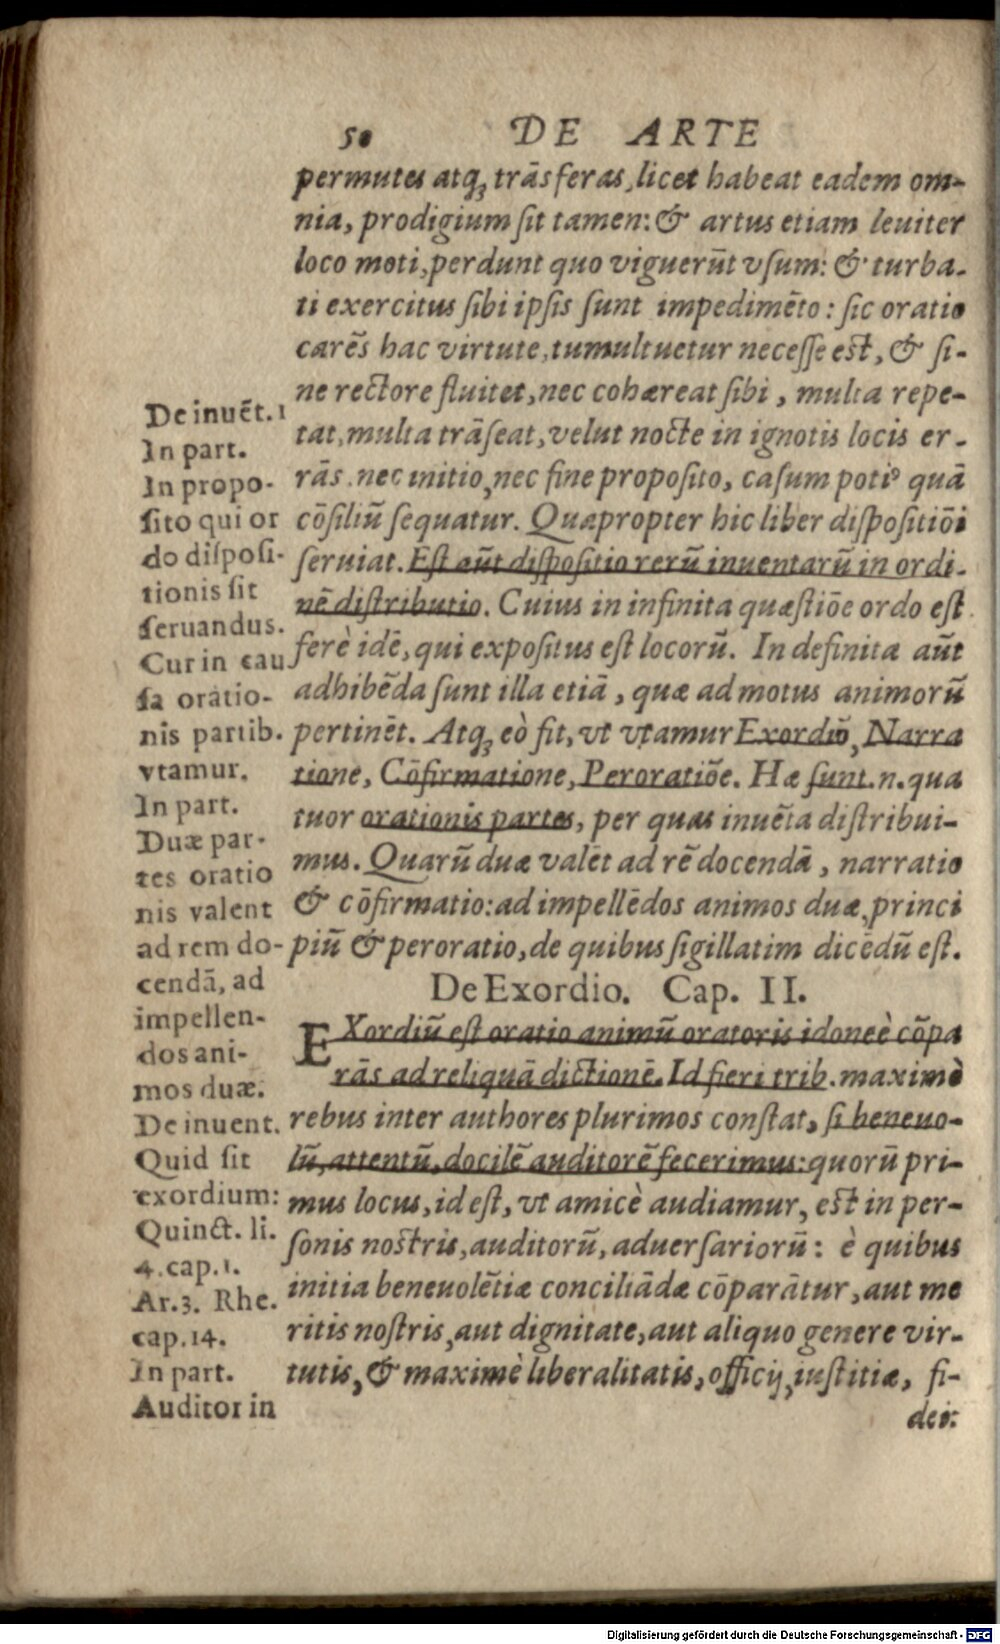 50 DE ARTE
permutes atq; trāsferas, licet habeat eadem om-
nia, prodigium sit tamen: & artus etiam leuiter
loco moti, perdunt quo viguerūt vsum: & turba-
ti exercitus sibi ipsis sunt impedimēto: sic oratio
carēs hac virtute, tumultuetur necesse est, & si-
ne rectore fluitet, nec cohæreat sibi, multa repe-
tat, multa trāseat, velut nocte in ignotis locis er-
rās, nec initio, nec fine proposito, casum potiꝰ quā
cōsiliū sequatur. Quapropter hic liber dispositiōi
seruiat. Est aūt dispositio rerū inuentarū in ordi-
nē distributio. Cuius in infinita quæstiōe ordo est
ferè idē, qui expositus est locorū. In definita aūt
adhibēda sunt illa etiā, quæ ad motus animorū
pertinēt. Atq; eò fit, vt vtamur Exordio, Narra
tione, Cōfirmatione, Peroratiōe. Hæ sunt .n. qua
tuor orationis partes, per quas inuēta distribui-
mus. Quarū duæ valēt ad rē docendā, narratio
& cōfirmatio: ad impellēdos animos duæ, princi
piū & peroratio, de quibus sigillatim dicēdū est.
De Exordio. Cap. II.
EXordiū est oratio animū oratoris idoneè cōpa
rās ad reliquā dictionē. Id fieri trib. maximè
rebus inter authores plurimos constat, si beneuo-
lū, attentū, docilē auditorē fecerimus: quorū pri-
mus locus, id est, vt amicè audiamur, est in per-
sonis nostris, auditorū, aduersariorū: è quibus
initia beneuolētiæ conciliādæ cōparātur, aut me
ritis nostris, aut dignitate, aut aliquo genere vir-
tutis, & maximè liberalitatis, officij, iustitiæ, fi-
dei:
De inuēt. 1
In part.
In propo-
sito qui or
do disposi-
tionis sit
seruandus.
Cur in cau
sa oratio-
nis partib.
vtamur.
In part.
Duæ par-
tes oratio
nis valent
ad rem do-
cendā, ad
impellen-
dos ani-
mos duæ.
De inuent.
Quid sit
exordium:
Quinct. li.
4. cap. 1.
Ar. 3. Rhe.
cap. 14.
In part.
Auditor in
Digitalisierung gefördert durch die Deutsche Forschungsgemeinschaft - DFG